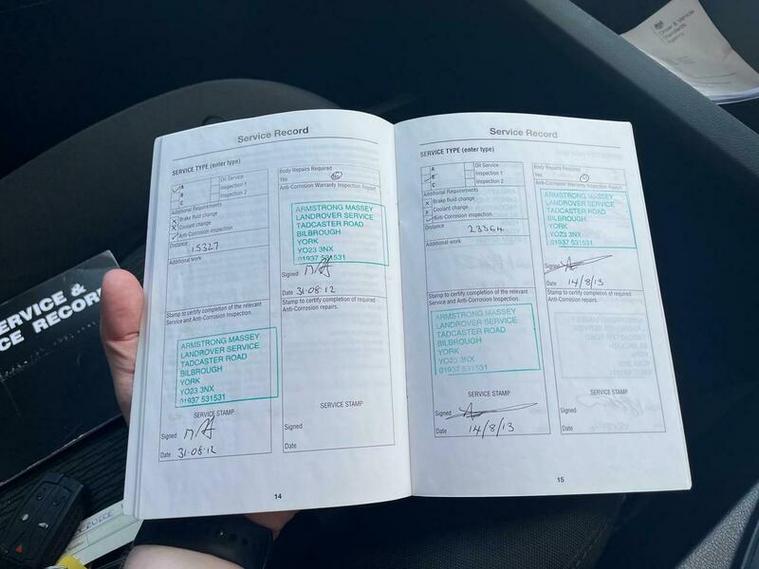 Service Record
SERVICE TYPE (enter type)
A
B
C
Oil Service
Inspection 1
Inspection 2
Additional Requirements
Brake fluid change
Coolant change
Anti-Corrosion inspection
Distance 15327
Additional work
Body Repairs Required
Yes
Anti-Corrosion Warranty Inspection Report
ARMSTRONG MASSEY
LANDROVER SERVICE
TADCASTER ROAD
BILBROUGH
YORK
YO23 3NX
01937 531531
Signed
Date 31-08-12
Stamp to certify completion of the relevant
Service and Anti-Corrosion Inspection.
ARMSTRONG MASSEY
LANDROVER SERVICE
TADCASTER ROAD
BILBROUGH
YORK
YO23 3NX
01937 531531
SERVICE STAMP
Signed
Date 31-08-12
Stamp to certify completion of required
Anti-Corrosion repairs.
SERVICE STAMP
Signed
Date
14
Service Record
SERVICE TYPE (enter type)
A
B
C
Oil Service
Inspection 1
Inspection 2
Additional Requirements
Brake fluid change
Coolant change
Anti-Corrosion inspection
Distance
Additional work
Body Repairs Required
Yes
Anti-Corrosion Warranty Inspection Report
ARMSTRONG MASSEY
LANDROVER SERVICE
TADCASTER ROAD
BILBROUGH
YORK
YO23 3NX
01937 531531
Signed
Date 14/8/13
Stamp to certify completion of the relevant
Service and Anti-Corrosion Inspection.
ARMSTRONG MASSEY
LANDROVER SERVICE
TADCASTER ROAD
BILBROUGH
YORK
YO23 3NX
01937 531531
SERVICE STAMP
Signed
Date 14/8/13
Stamp to certify completion of required
Anti-Corrosion repairs.
SERVICE STAMP
Signed
Date
15
SERVICE &
RECOR
Driver & Vehicle
Standards
Agency